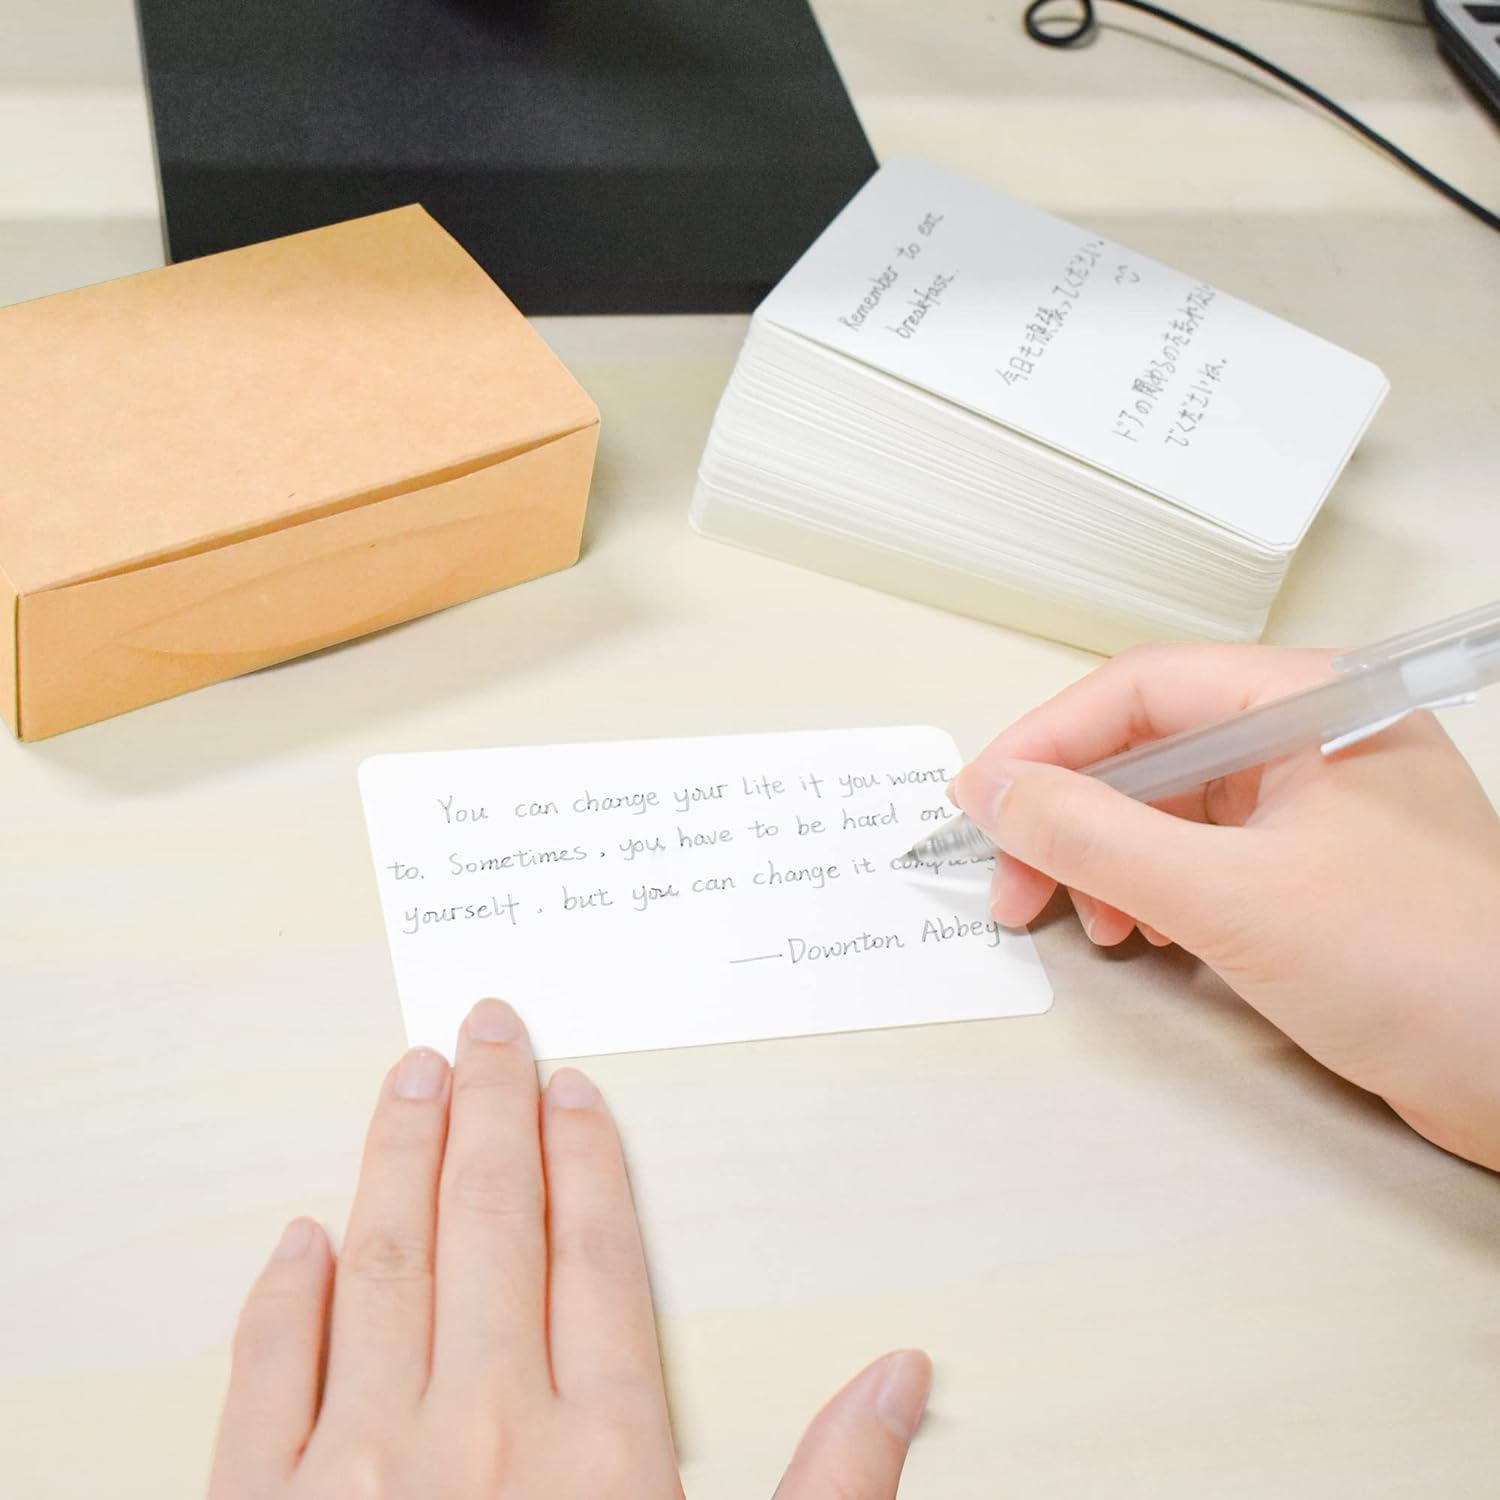 Remember to eat
breakfast.
今日も頑張ってください。
ドアの閉めるのを忘れない
でくださいね。
You can change your life if you want
to. Sometimes, you have to be hard on
yourself, but you can change it
——Downton Abbey